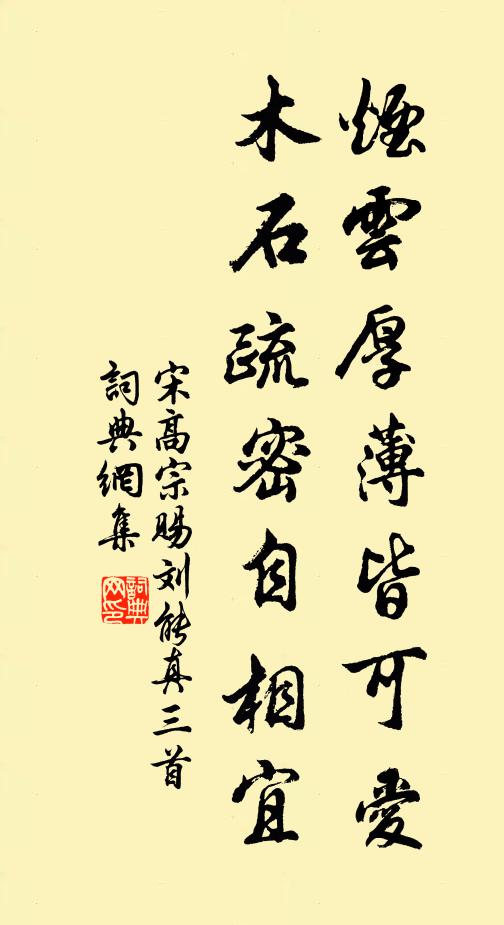 煙雲厚薄皆可愛
木石疏密自相宜
宋高宗賜刘能真三首
詞典網集
詞典网印